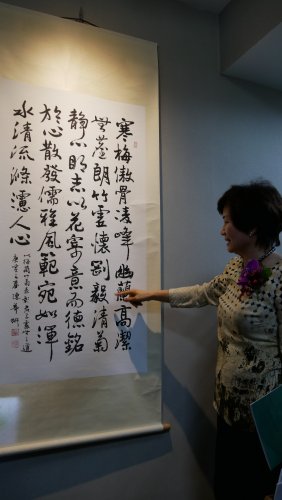 寒梅傲骨凌峰幽蘭高潔
無塵朗竹虛懷剛毅清菊
靜心明志以花寄意而德銘
於心散發儒雅風範宛如渾
水清流滌濾人心